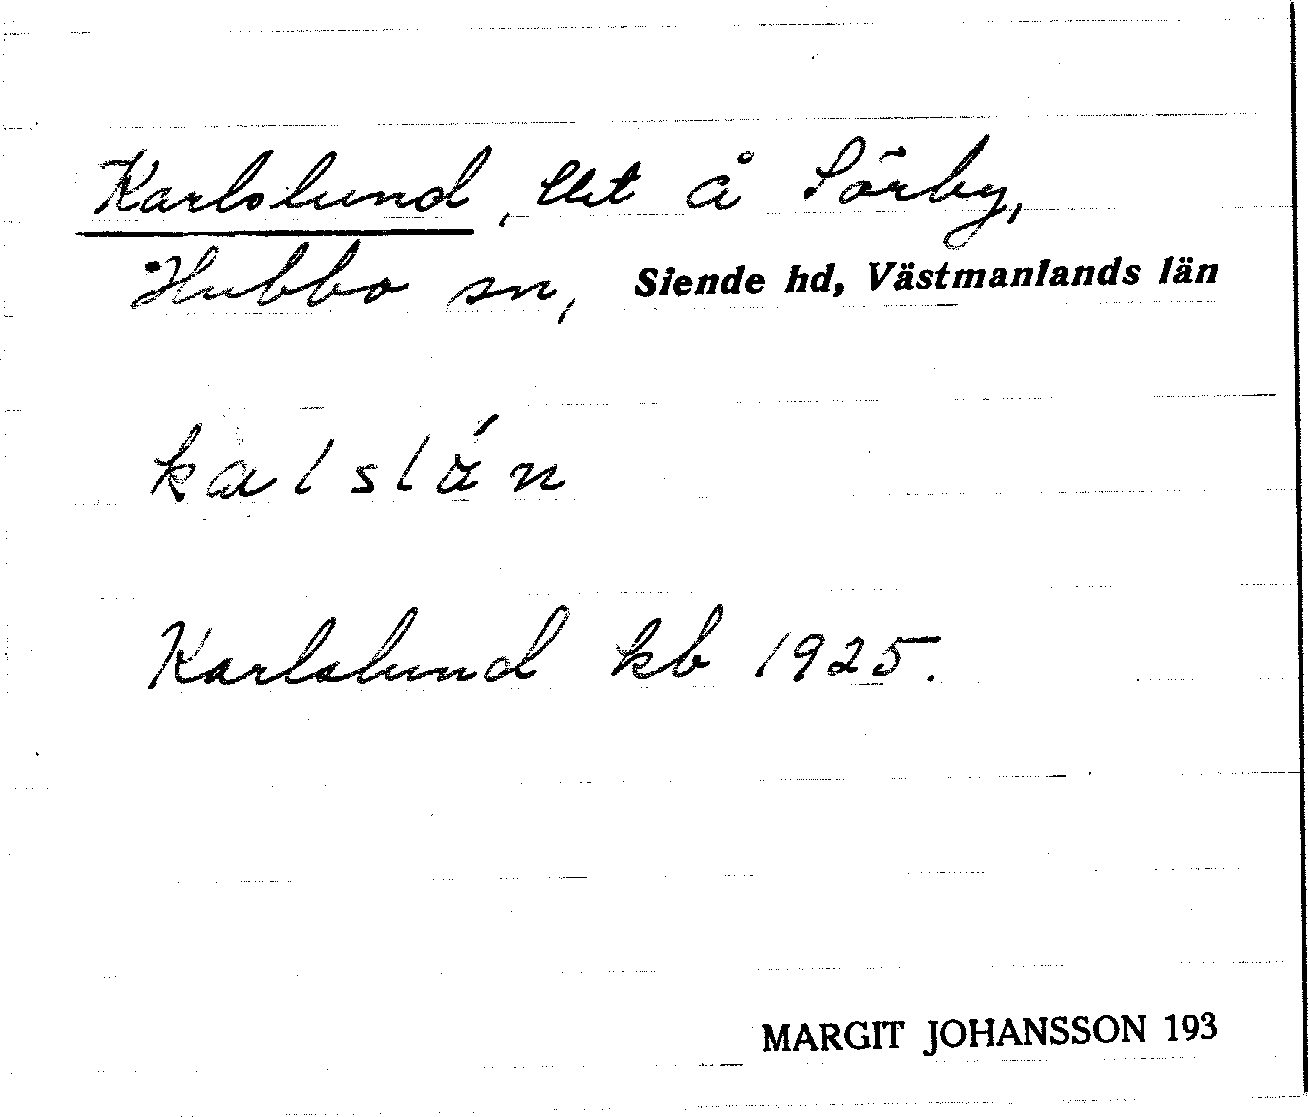 Karlslund, lht å Sörby,
Hubbo sn, Siende hd, Västmanlands län
kalslán
Karlslund kb 1925.
MARGIT JOHANSSON 193